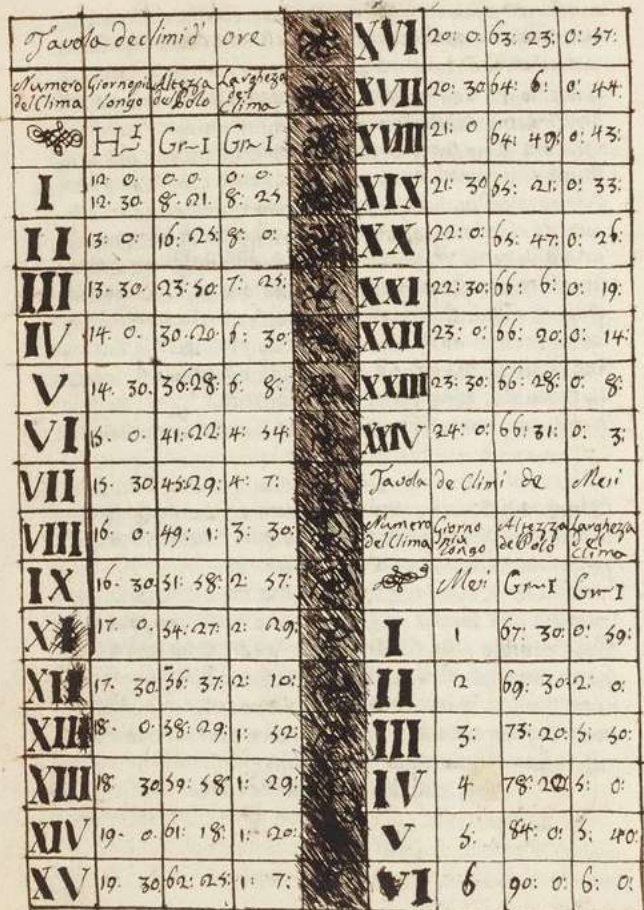 Tavola de climi d' ore
Numero del Clima Giorno piu longo Altezza de Polo Larghezza del Clima
H I Gr I Gr I
I 12 0. 0. 0. 0. 0.
12. 30. 8. 21. 8: 25
II 13: 0: 16: 25: 8: 0:
III 13. 30. 23: 50: 7: 25:
IV 14. 0. 30. 20. 6: 30:
V 14. 30. 36:28: 6: 8:
VI 15. 0. 41: 22: 4: 54:
VII 15. 30 45:29: 4: 7:
VIII 16. 0. 49: 1: 3: 30:
IX 16. 30 51: 58: 2: 57:
X 17. 0. 54: 27: 2: 29:
XI 17. 30 56: 37: 2: 10:
XII 18. 0. 58: 29: 1: 52:
XIII 18. 30 59: 58 1: 29:
XIV 19. 0. 61: 18: 1: 20:
XV 19. 30 62: 25: 1: 7:
XVI 20: 0. 63: 23: 0: 57:
XVII 20: 30 64: 6: 0: 44:
XVIII 21: 0 64: 49: 0: 43:
XIX 21: 30 65: 21: 0: 33:
XX 22: 0: 65: 47: 0: 26:
XXI 22: 30: 66: 6: 0: 19:
XXII 23: 0: 66: 20: 0: 14:
XXIII 23: 30: 66: 28: 0: 8:
XXIV 24: 0: 66: 31: 0: 3:
Tavola de Climi de Mesi
Numero del Clima Giorno piu longo Altezza de Polo Larghezza del Clima
Mesi Gr I Gr I
I 1 67: 30: 0: 59:
II 2 69: 30: 2: 0:
III 3: 73: 20: 3: 50:
IV 4 78: 20: 5: 0:
V 5: 84: 0: 5: 40:
VI 6 90: 0: 6: 0: